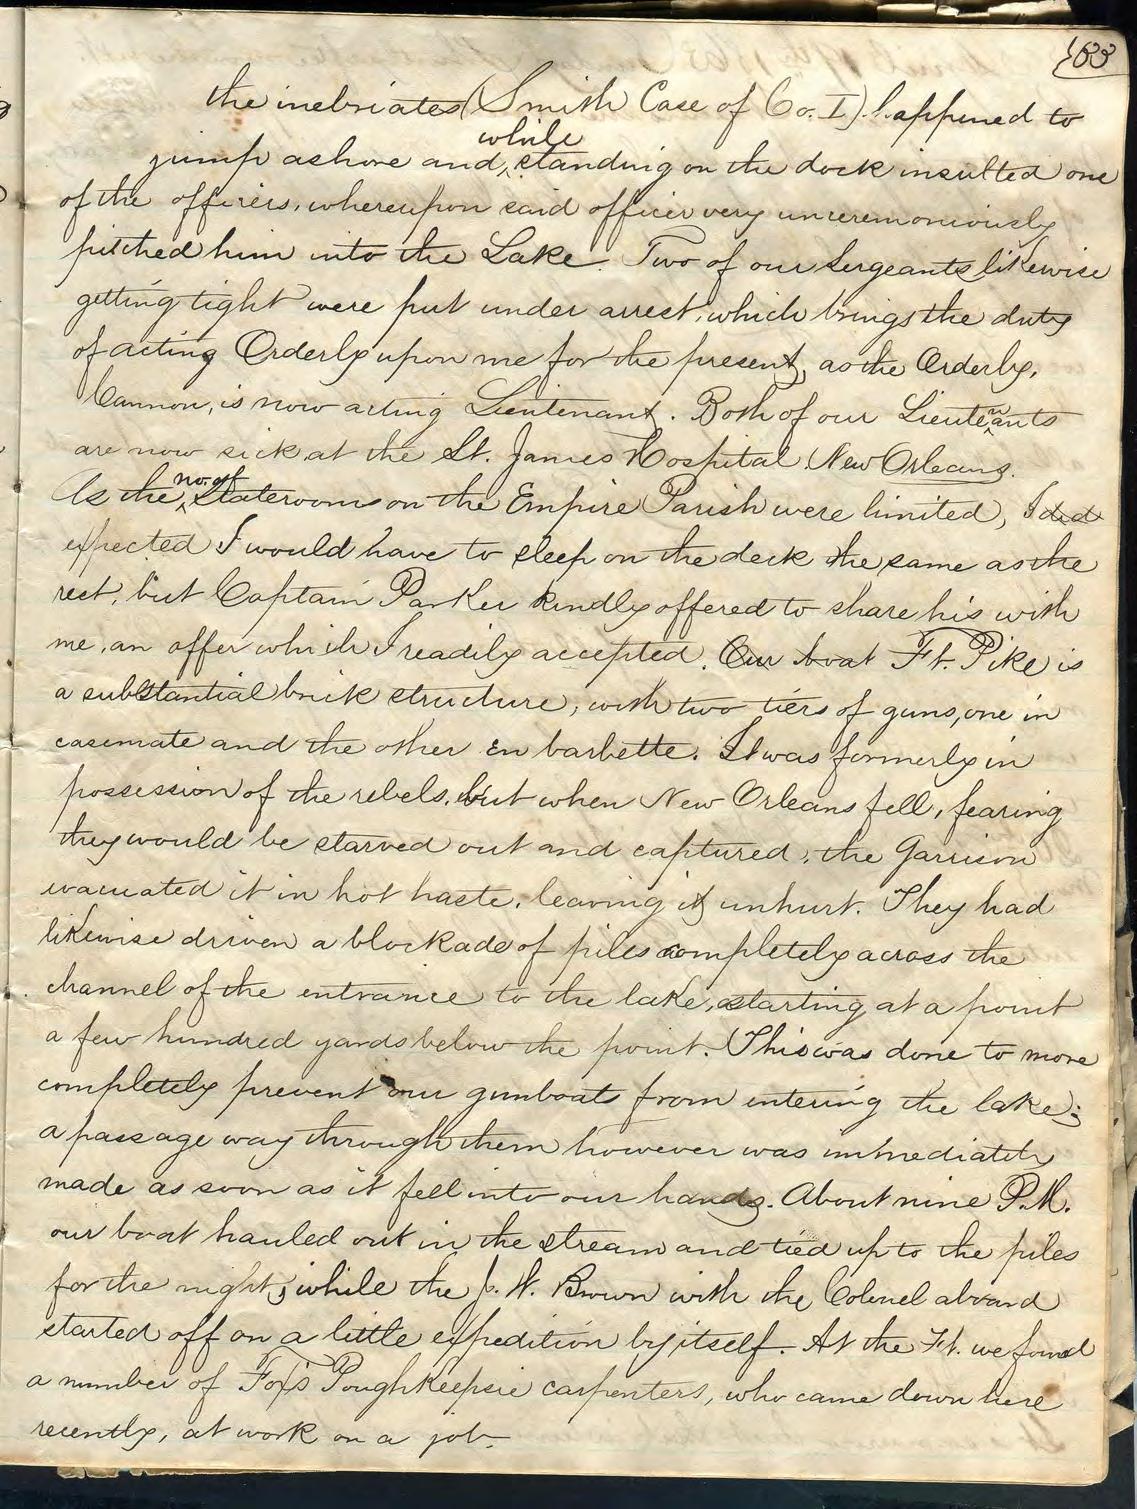 the inebriates (Smith Case of Co. I) happened to
while
jump ashore and, standing on the dock insulted one
of the officers, whereupon said officer very unceremoniously
pitched him into the Lake. Two of our Sergeants likewise
getting tight were put under arrest, which brings the duty
of acting Orderly upon me for the present, as the Orderly,
Cannon, is now acting Lieutenant. Both of our Lieutenants
are now sick at the St. James Hospital New Orleans.
no. of
As the staterooms on the Empire Parish were limited, I did
expected I would have to sleep on the deck the same as the
rest, but Captain Parker kindly offered to share his with
me, an offer which I readily accepted. Our boat Ft. Pike is
a substantial brick structure, with two tiers of guns, one in
casemate and the other en barbette. It was formerly in
possession of the rebels, but when New Orleans fell, fearing
they would be starved out and captured, the Garrison
evacuated it in hot haste, leaving it unhurt. They had
likewise driven a blockade of piles completely across the
channel of the entrance to the lake, starting at a point
a few hundred yards below the point. This was done to more
completely prevent our gunboats from entering the lake;
a passage way through them however was immediately
made as soon as it fell into our hands. About nine P.M.
our boat hauled out in the stream and tied up to the piles
for the night; while the J. W. Brown with the Colonel aboard
started off on a little expedition by itself. At the Ft. we found
a number of Fox's Poughkeepsie carpenters, who came down here
recently, at work on a job.